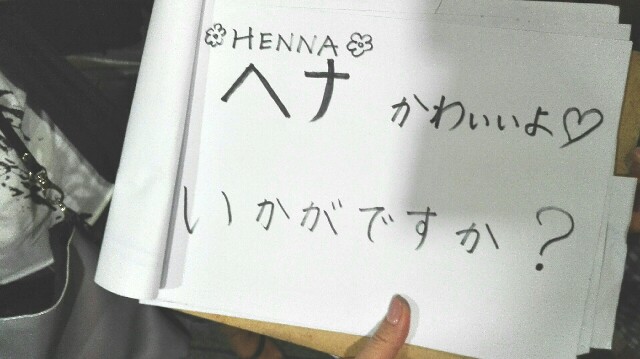 HENNA
ヘナ かわいいよ♡
いかがですか?